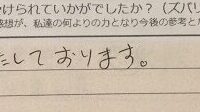 けられていかがでしたか?(ズバリ
感想が、私達の何よりの力となり今後の参考とな
たしております。